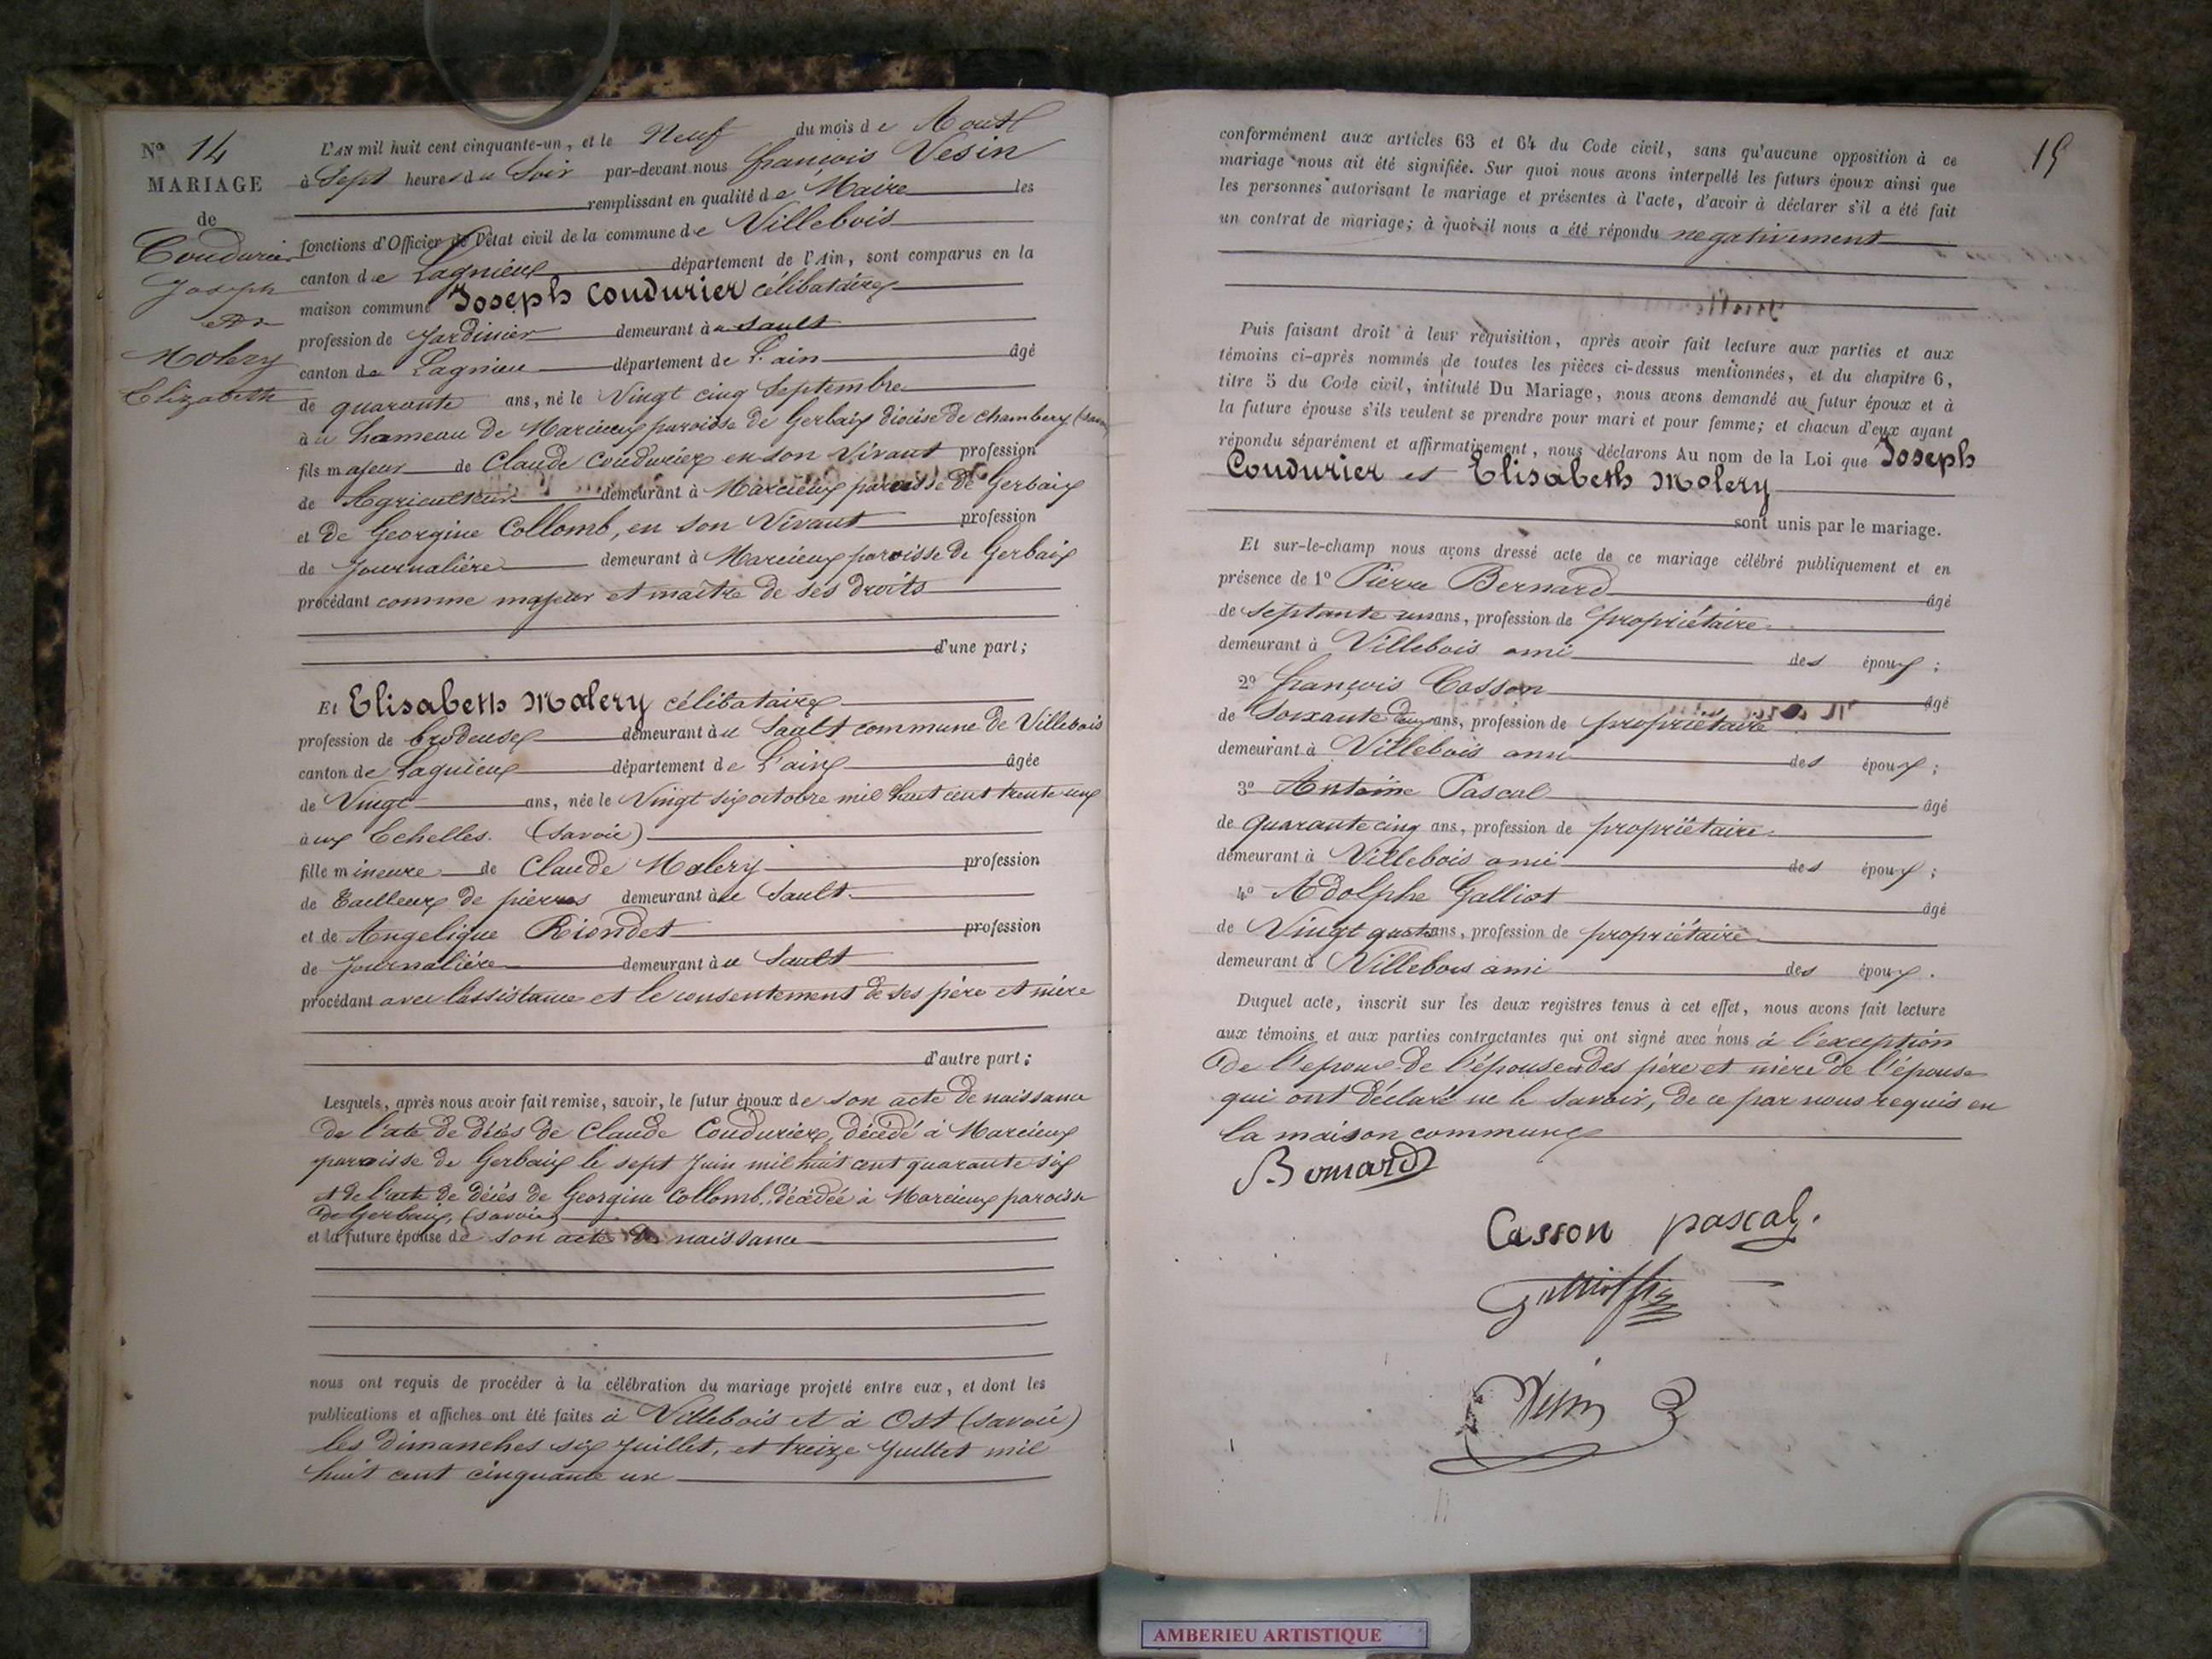 Nº 14
MARIAGE
de
Coudurier
Joseph
et
Molery
Elizabeth
L'AN mil huit cent cinquante-un, et le Neuf du mois de Aout
à Sept heures du Soir par-devant nous françois Vesin
remplissant en qualité de Maire les
fonctions d'Officier de l'état civil de la commune de Villebois
canton de Lagnieux département de l'Ain, sont comparus en la
maison commune Joseph Coudurier célibataire
profession de Jardinier demeurant à u Sault
canton de Lagnieu département de L'ain âgé
de quarante ans, né le Vingt cinq Septembre
à u hameau de Marcieux paroisse de Gerbaix diocèse de Chambery
fils majeur de Claude Coudurier en son Vivant profession
de Agriculteur demeurant à Marcieux paroisse de Gerbaix
et de Georgine Collomb, en son Vivant profession
de Journalière demeurant à Marcieux paroisse de Gerbaix
procédant comme majeur et maître de ses droits
d'une part;
Et Elisabeth Molery célibataire
profession de brodeuse demeurant à u Sault commune de Villebois
canton de Lagnieux département de L'ain âgée
de Vingt ans, née le Vingt six octobre mil huit cent trente un
à ux Echelles. (Savoie)
fille mineure de Claude Molery profession
de Tailleur de pierres demeurant à u Sault
et de Angelique Riondet profession
de Journalière demeurant à u Sault
procédant avec l'assistance et le consentement de ses père et mère
d'autre part;
Lesquels, après nous avoir fait remise, savoir, le futur époux de son acte de naissance
de l'acte de décès de Claude Coudurier, décédé à Marcieux
paroisse de Gerbaix le sept Juin mil huit cent quarante six
et de l'acte de décès de Georgine Collomb, décédée à Marcieux paroisse
de Gerbaix, (Savoie)
et la future épouse de son acte de naissance
nous ont requis de procéder à la célébration du mariage projeté entre eux, et dont les
publications et affiches ont été faites à Villebois et à Ost (Savoie)
les dimanches six Juillet, et treize Juillet mil
huit cent cinquante un
15
conformément aux articles 63 et 64 du Code civil, sans qu'aucune opposition à ce
mariage nous ait été signifiée. Sur quoi nous avons interpellé les futurs époux ainsi que
les personnes autorisant le mariage et présentes à l'acte, d'avoir à déclarer s'il a été fait
un contrat de mariage; à quoi il nous a été répondu negativement
Puis faisant droit à leur réquisition, après avoir fait lecture aux parties et aux
témoins ci-après nommés de toutes les pièces ci-dessus mentionnées, et du chapitre 6,
titre 5 du Code civil, intitulé Du Mariage, nous avons demandé au futur époux et à
la future épouse s'ils veulent se prendre pour mari et pour femme; et chacun d'eux ayant
répondu séparément et affirmativement, nous déclarons Au nom de la Loi que Joseph
Coudurier et Elisabeth Molery
sont unis par le mariage.
Et sur-le-champ nous avons dressé acte de ce mariage célébré publiquement et en
présence de 1º Pierre Bernard âgé
de septante un ans, profession de propriétaire
demeurant à Villebois ami des époux;
2º françois Casson âgé
de Soixante deux ans, profession de propriétaire
demeurant à Villebois ami des époux;
3º Antoine Pascal âgé
de quarante cinq ans, profession de propriétaire
demeurant à Villebois ami des époux;
4º Adolphe Galliot âgé
de Vingt quatre ans, profession de propriétaire
demeurant à Villebois ami des époux.
Duquel acte, inscrit sur les deux registres tenus à cet effet, nous avons fait lecture
aux témoins et aux parties contractantes qui ont signé avec nous à l'exception
de l'epoux de l'épouse des père et mère de l'épouse
qui ont déclaré ne le savoir, de ce par nous requis en
la maison commune
Bernard
Casson pascal.
Galliot
Vesin
AMBERIEU ARTISTIQUE